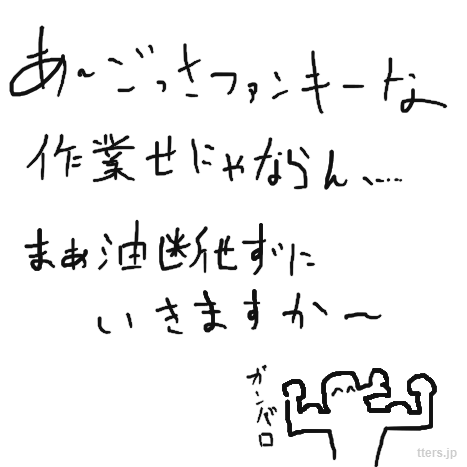 あ~ごっさファンキーな
作業せにゃならん、…
まぁ油断せずに
いきますか~
ガンバロ
tters.jp